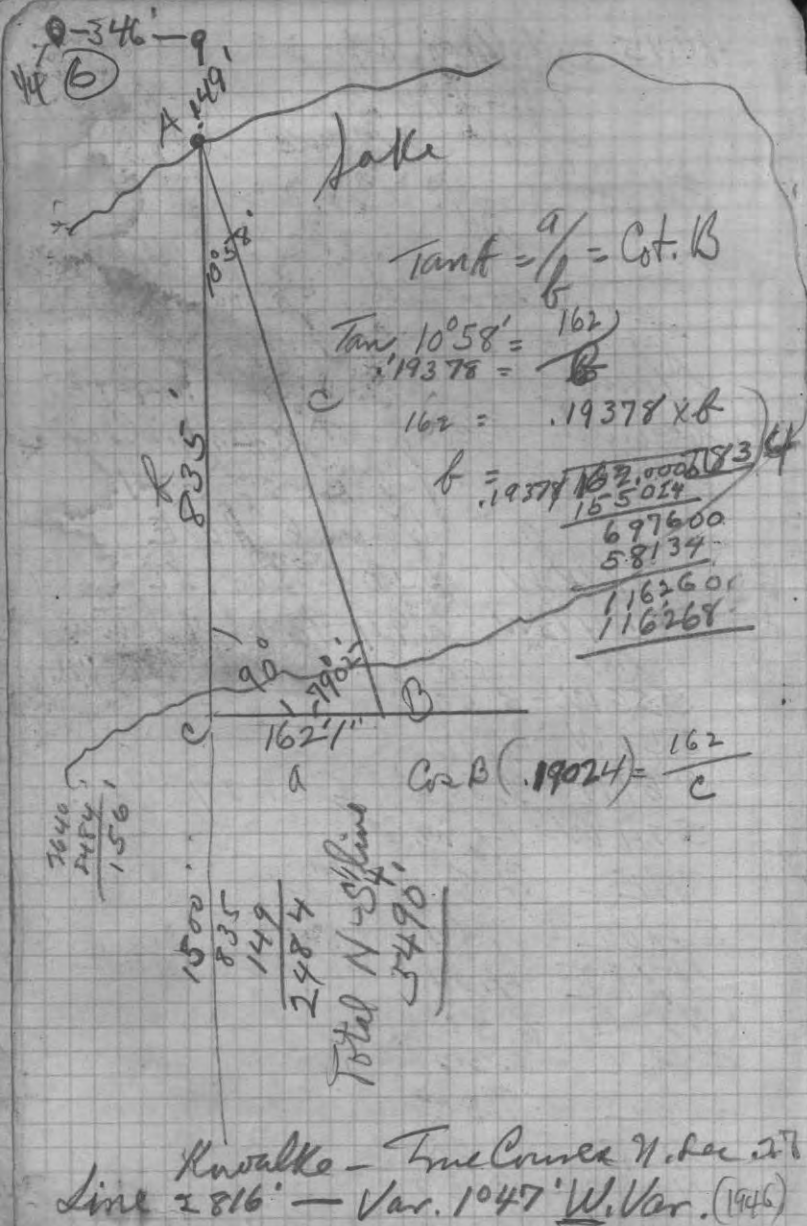 -346'-
1/4 6
149'
A
Lake
10°58'
Tan A = a/b = Cot. B
Tan 10°58' = 162
.19378 = b
c
162 = .19378 x b
b 835'
b =
.19378 162.000
155024
697600
58134
116260
116268
90°
79°02'
B
C
162'1"
a
Cos B (.19024) = 162/c
2640
2484
156'
1500
835
149
2484
Total N-S line
5490'
Kovalke - True N. Sec. 27
Line 2816' - Var. 1°47' W. Var. (1946)